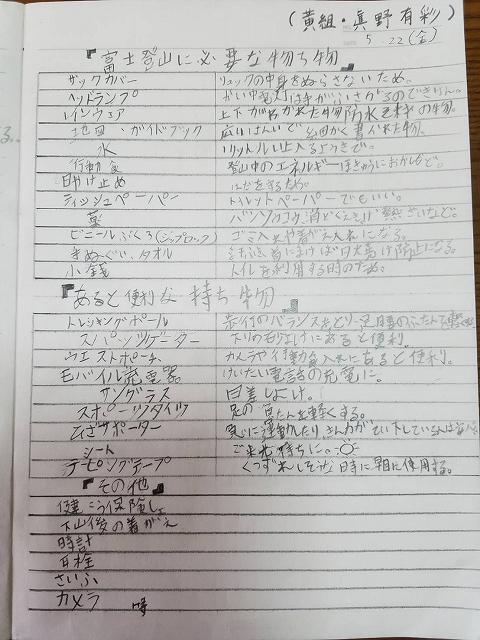 (黄組・真野有彩)
5.22(金)
『富士登山に必要な物ち物』
ザックカバー リュックの中身をぬらさないため。
ヘッドランプ かい中電灯は手がふさがるのでできけん。
レインウェア 上下が分かれた物防水素材の物。
地図・ガイドブック 広いはんいで細かく書かれた物。
水 リットル以上入るようきで。
行動食 登山中のエネルギーほきゅうにおかしなど。
日やけ止め はだを守るため。
ティッシュペーパー トイレットペーパーでもいい。
薬 バンソウコウ、消どくえき、げ熱ざいなど。
ビニールぶくろ(ジップロック) ゴミ入れや着がえ入れになる。
手ぬぐい、タオル 首にまけば日焼け防止になる。
小銭 トイレを利用する時のため。
『あると便利な持ち物』
トレッキングポール 歩行のバランスをとり、足腰のふたんを
スパッツゲーター 下りの砂よけにあると便利。
ウエストポーチ カメラや行動食入れにあると便利。
モバイル充電器 けいたい電話の充電に。
サングラス 日差しよけ。
スポーツタイツ 足の負たんを軽くする。
ひざサポーター 急に運動したりきん力がてい下している人は
シート ご来光待ちに。
テーピングテープ くつずれしそうな時に早目に使用する。
『その他』
健こう保険しょ
下山後の着がえ
時計
耳栓
さいふ
カメラ